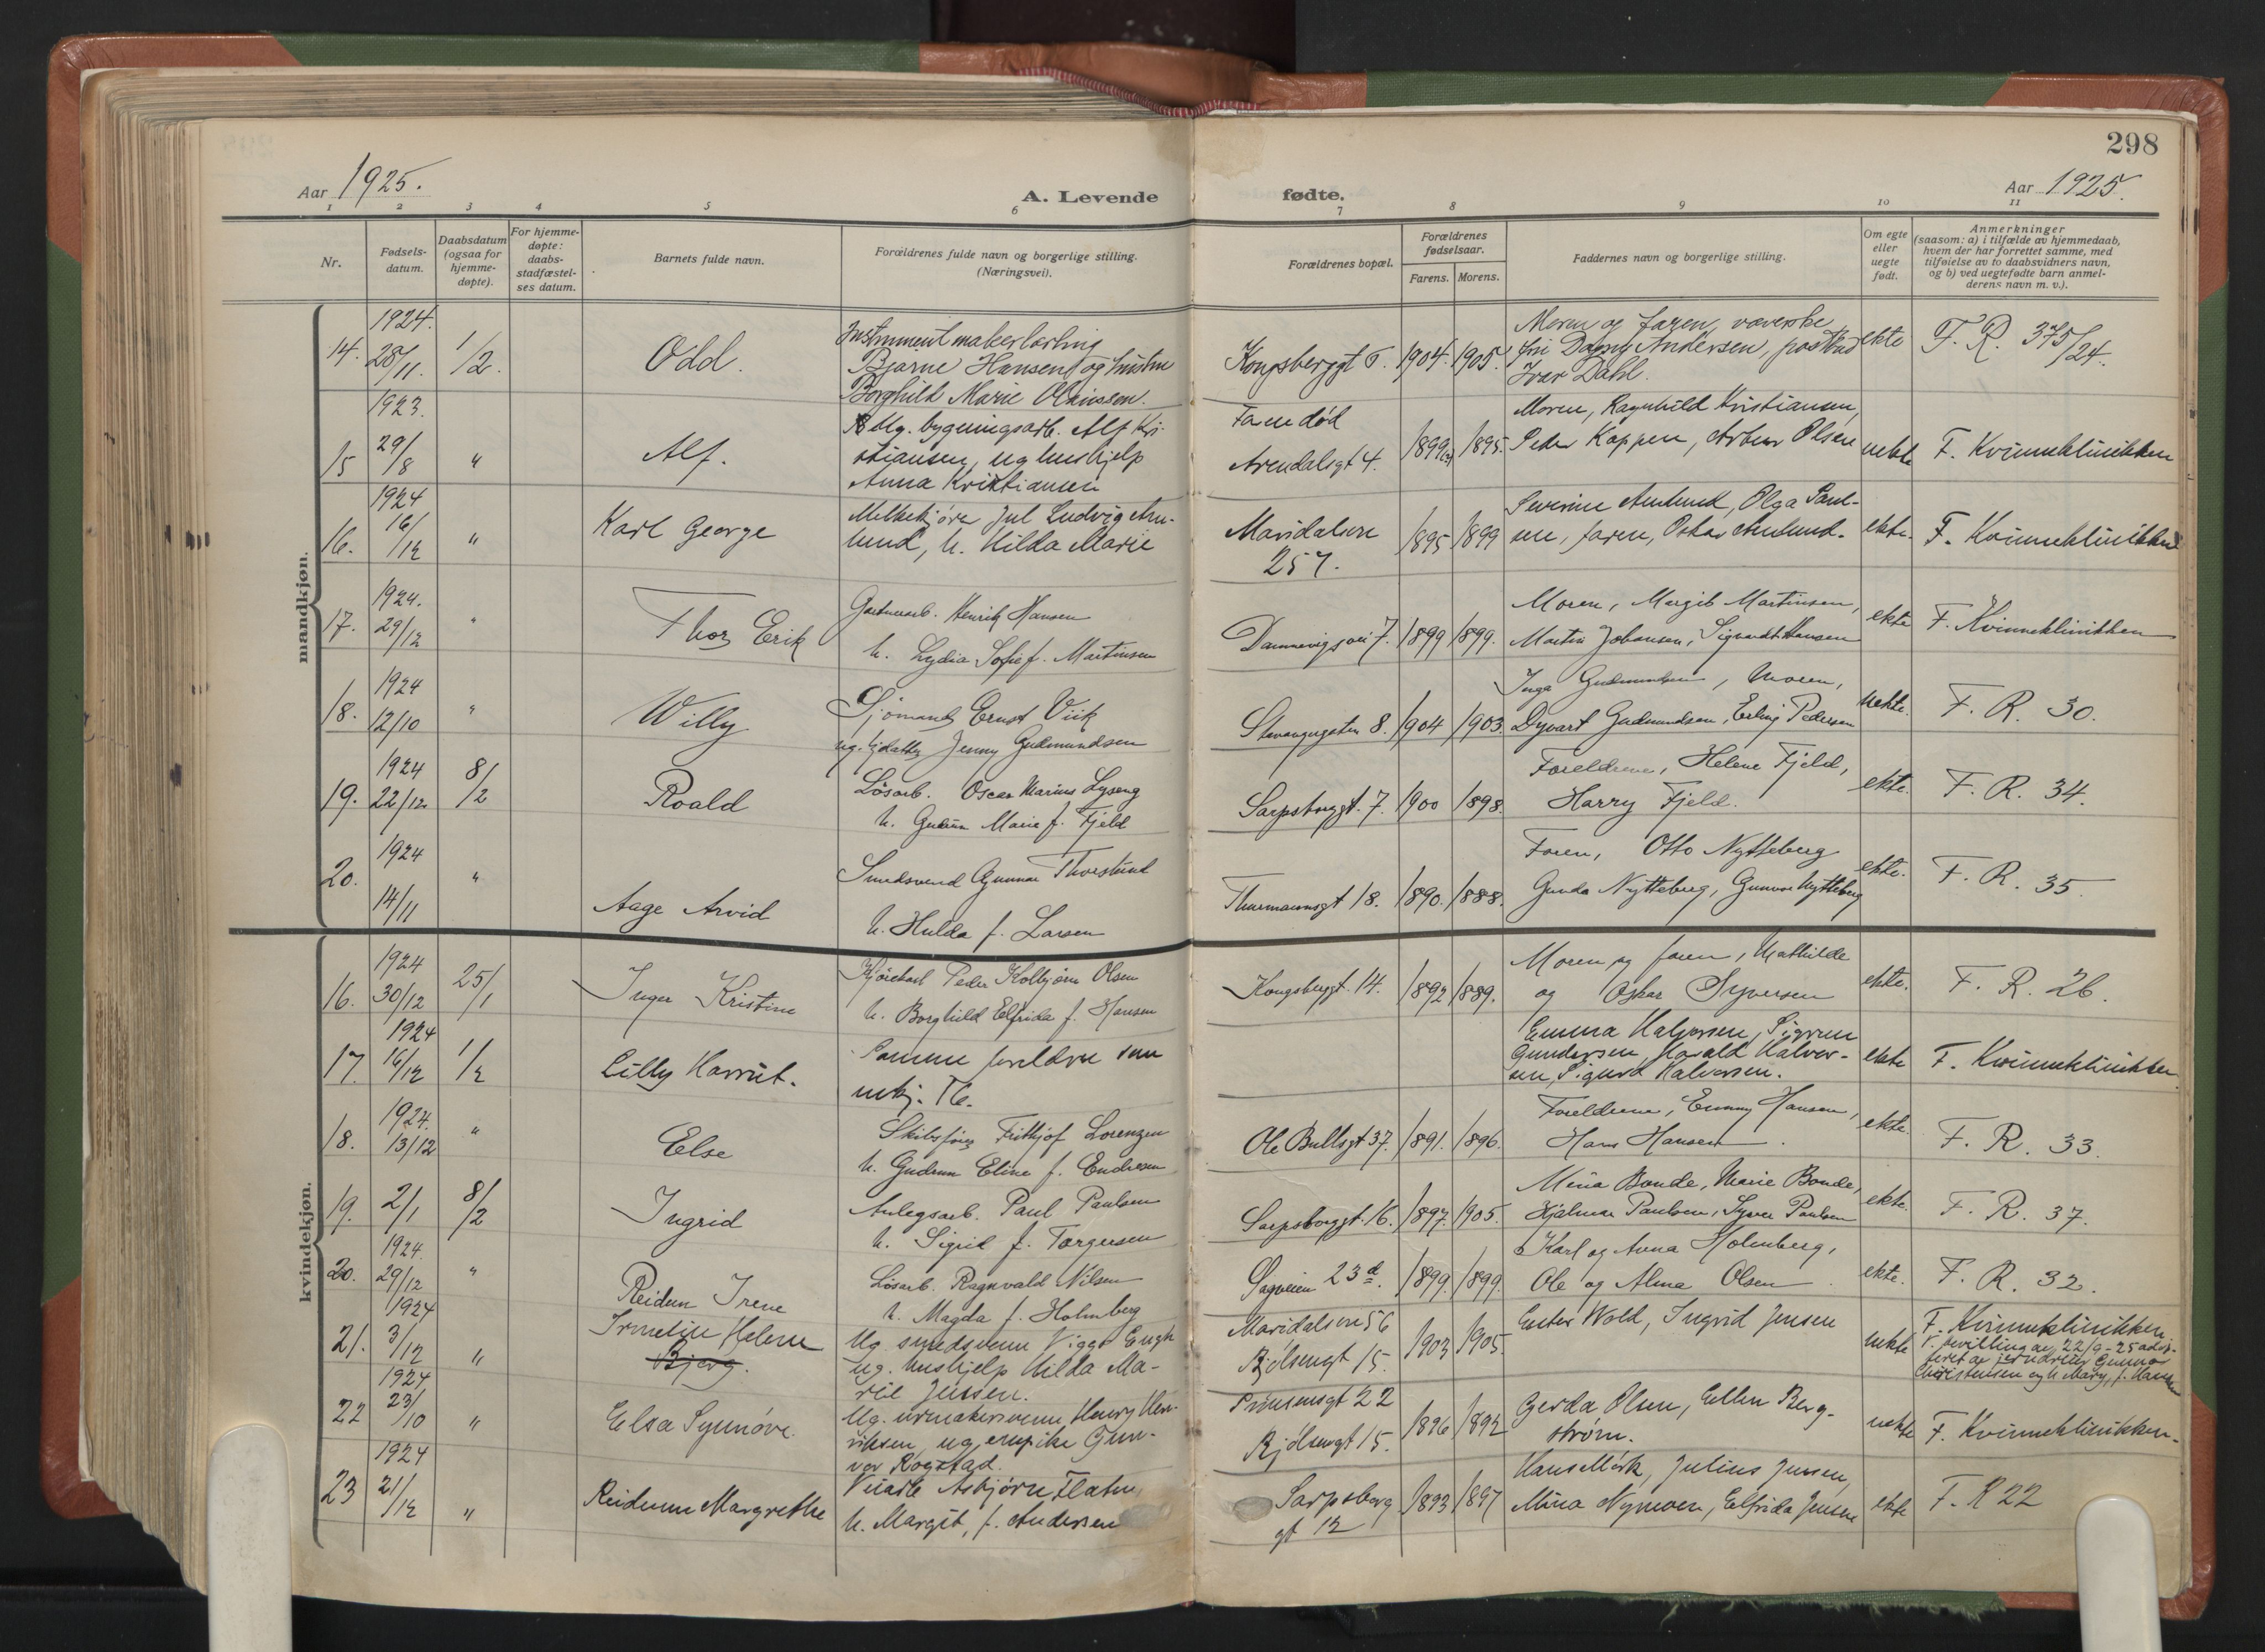 298
Aar 1925.
A. Levende fødte.
Aar 1925.
1 2 3 4 5 6 7 8 9 10 11
Nr.
Fødsels-
datum.
Daabsdatum
(ogsaa for
hjemme-
døpte).
For hjemme-
døpte:
daabs-
stadfæstel-
ses datum.
Barnets fulde navn.
Forældrenes fulde navn og borgerlige stilling.
(Næringsvei).
Forældrenes bopæl.
Forældrenes
fødselsaar.
Farens. Morens.
Faddernes navn og borgerlige stilling.
Om egte
eller
uegte
født.
Anmerkninger
(saasom: a) i tilfælde av hjemmedaab,
hvem der har forrettet samme, med
tilføielse av to daabsvidners navn,
og b) ved uegtefødte barn anmel-
derens navn m. v.).
mandkjøn.
14. 1924. 28/11. 1/2. Odd.
Instrumentmakerlærling
Bjarne Hansen og hustru
Borghild Marie
Kongsberggt 5. 1904. 1905.
Moren og faren, væverske
frk Dagny Andersen, postbud
Ivar Dahl.
ekte F. R. 375/24.
15 1923. 29/8 " Alf.
Ug. bygningsarb. Alf Kri-
stiansen, ug hushjelp
Anna Kristiansen
Faren død
Arendalsgt 4. 1899 1895.
Moren, Ragnhild Kristiansen,
Peder Koppen, Olsen
uekte F. Kvinneklinikken
16. 1924 16/12 " Karl George
Melkekjører Jul Ludvig Am-
lund, h. Hilda Marie
Maridalsvn
257. 1895 1899
Severine Amlund, Olga Paul-
sen, faren, Oskar Amlund.
ekte. F. Kvinneklinikken
17. 1924. 29/12 " Thor Erik
Gartnerarb. Henrik Hansen
h. Lydia Sofie f. Martinsen
Dannevigsvei 7. 1899 1899.
Moren, Margit Martinsen,
Martin Johansen, Sigvardt Hansen
ekte F. Kvinneklinikken
18. 1924 12/10 " Willy
Sjømand Ernst Viik
ug. Jenny Gudmundsen
Stavangergaten 8. 1904 1903.
Inga Gudmundsen, Moren,
Dyvart Gudmundsen, Erling Pedersen
uekte. F. R. 30.
19. 1924 22/12 8/2 Roald
Løsarb. Oscar Marius Lyseng
h. Gudrun Marie f. Fjeld
Sarpsborggt. 7. 1900 1898.
Foreldrene, Helene Fjeld,
Harry Fjeld.
ekte. F. R. 34.
20. 1924 14/11 " Aage Arvid
Smedsvend Gunnar Thorslund
h. Hulda f. Larsen
Thurmannsgt 18. 1890. 1888.
Faren, Otto Nytteberg
Gunda Nytteberg, Gunvor Nytteberg
ekte. F. R. 35.
kvindekjøn.
16. 1924 30/12 25/1 Inger Kristine
Peder Kolbjørn Olsen
h. Borghild Elfrida f. Hansen
Kongsberggt. 14. 1892 1889.
Moren og faren, Mathilde
og Oskar Syversen
ekte. F. R. 26.
17. 1924 16/12 1/2 Lilly Harriet.
Samme foreldre som
mkj. 16.
Emma Halvorsen, Sigrun
Gundersen, Harald Halvor-
sen, Sigurd Halvorsen.
ekte F. Kvinneklinikken
18. 1924. 13/12 " Else
Skibsfører Frithjof Lorenzen
h. Gudrun Eline f. Endresen
Ole Bullsgt 37. 1891. 1896.
Foreldrene, Emmy Hansen,
Hans Hansen.
ekte. F. R. 33.
19. 2/1 8/2 Ingrid
Anlegsarb. Paul Paulsen
h. Sigrid f. Torgersen
Sarpsborggt. 16. 1897. 1905.
Mina Bonde, Marie Bonde,
Hjalmar Paulsen, Syver Paulsen
ekte. F. R. 37.
20. 1924. 29/12 " Reidun Irene
Løsarb. Ragnvald Nilsen
h. Magda f. Holmberg
Sagveien 23d. 1899. 1899.
Karl og Anna Holmberg,
Ole og Alma Olsen.
ekte. F. R. 32.
21. 1924 3/12 " Irmelin Helene
Bjerg.
Ug. smedsvenn Viggo Engh
ug. hushjelp Hilda Ma-
rie Jensen.
Maridalsvn 56
Bjølsengt 15. 1903 1905.
Ester Wold, Ingrid Jensen
uekte F. Kvinneklinikken
V. bevilling av 22/9-25 adop-
teret av Gunnar
Christensen og h. Mary, f. Hansen
22 1924 23/10 " Elsa Synnøve.
Ug. urmakersvenn Henry Hen-
riksen, ug. Gun-
vor Rogstad.
Prinsensgt 22
Bjølsengt 15. 1896 1892
Gerda Olsen, Ellen Berg-
strøm.
uekte F. Kvinneklinikken.
23 1924 21/12 " Reidunn Margrethe
Asbjørn Flatun
h. Margit, f. Andersen
Sarpsborg
gt 12 1893 1897
Hans Mørk, Julius Jensen,
Mina Nymoen, Elfrida Jensen
ekte F. R 22